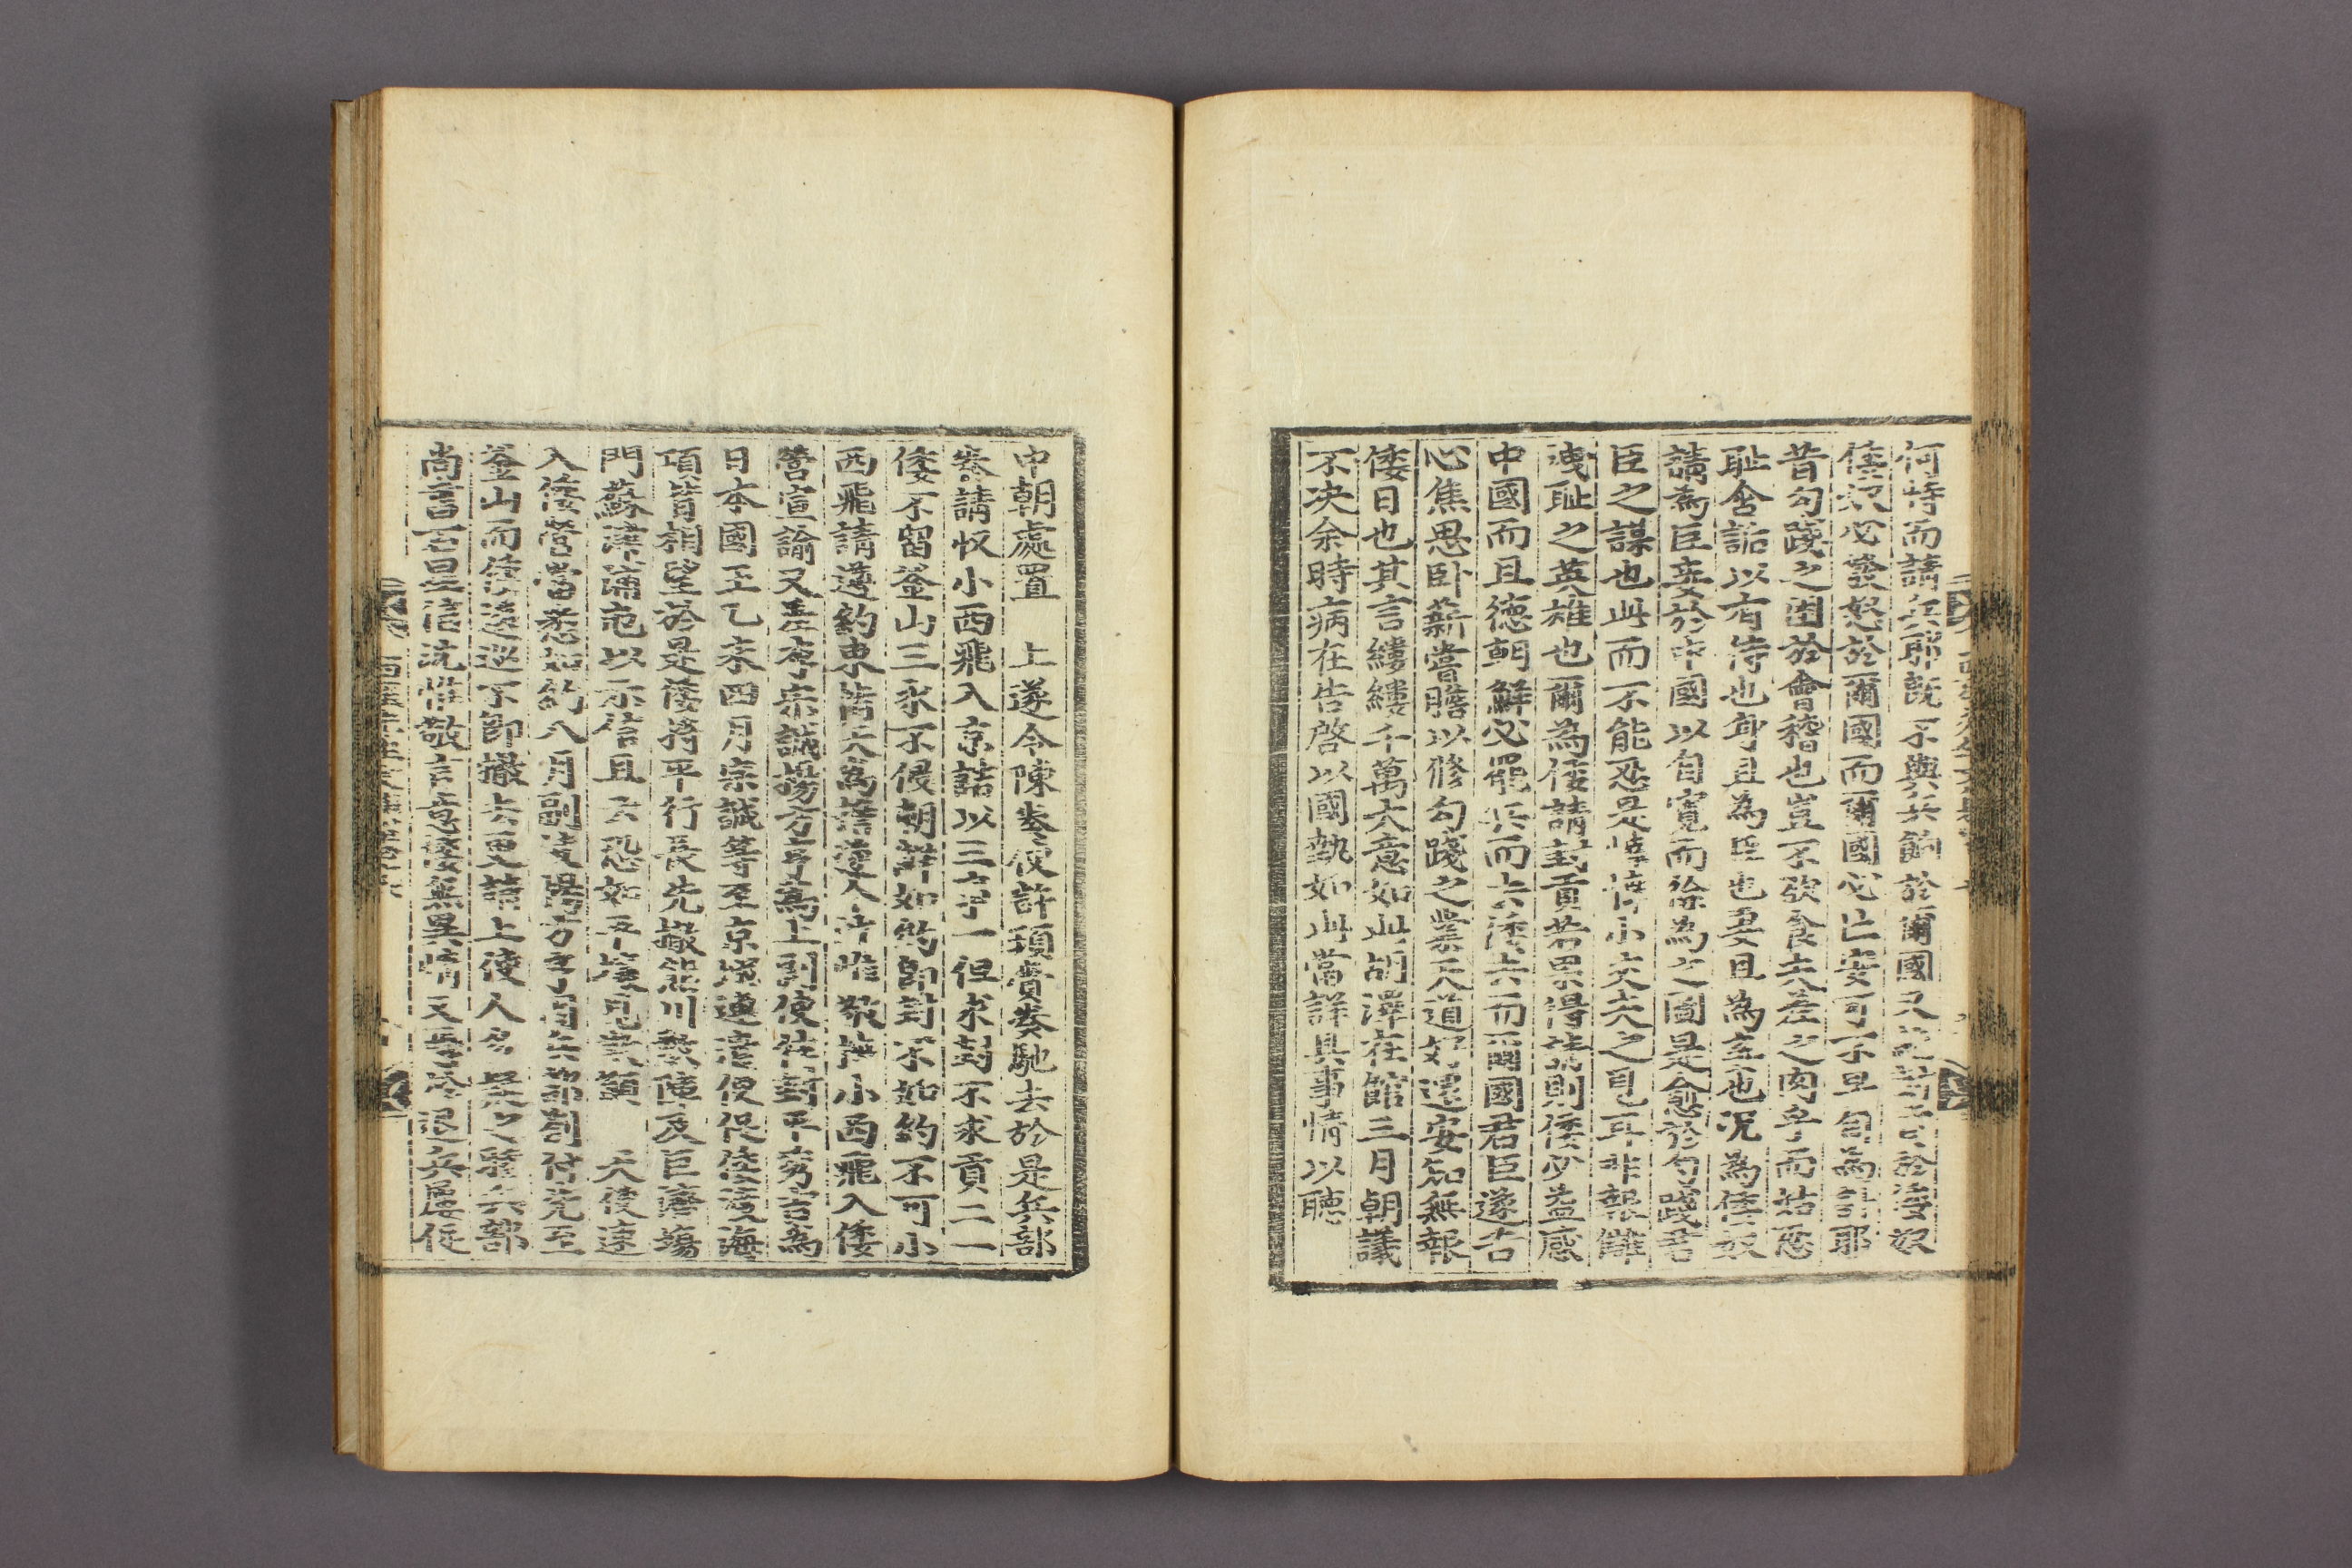 何時而請兵耶旣不與兵餉於爾國又不請封貢於倭奴
倭奴必發怒於爾國而爾國必亡安可不早自爲計耶
昔勾踐之困於會稽也豈不欲食夫差之肉乎而姑忍
耻含詬以有待也身且為臣也妻且為妾也況為倭奴
請為臣妾於中國以自寬而徐為之圖是愈於勾踐君
臣之謀也此而不能忍是悻悻小丈夫之見耳非報讎
洩耻之英雄也爾為倭請封貢若果得請則倭必益感
中國而且德朝鮮必罷兵而去倭去而爾國君臣遂苦
心焦思卧薪嘗膽以修勾踐之業天道好還安知無報
倭日也其言縷縷千萬大意如此胡澤在館三月朝議
不决余時病在告啓以國勢如此當詳具事情以聽
中朝處置　上遂令陳奏使許頊賫奏馳去於是兵部
奏請收小西飛入京詰以三事一但求封不求貢二一
倭不留釜山三永不侵朝鮮如約卽封不如約不可小
西飛請遵約束
營宣諭又差李宗誠揚方亨為上副使往封平秀吉為
日本國王乙未四月宗誠等至京城連遣使促倭渡海
項背相望於是倭將平行長先撤熊川數陣及巨濟塲
門蘇津浦屯以示信且云恐如平壤見欺願　天使速
入倭營當悉如約八月副使楊方亨因兵部劄付先至
釜山而倭遷延不卽撤去更請上使人多疑之然兵部
尚書石星信沈惟敬言意倭無異情又急於退兵屢促